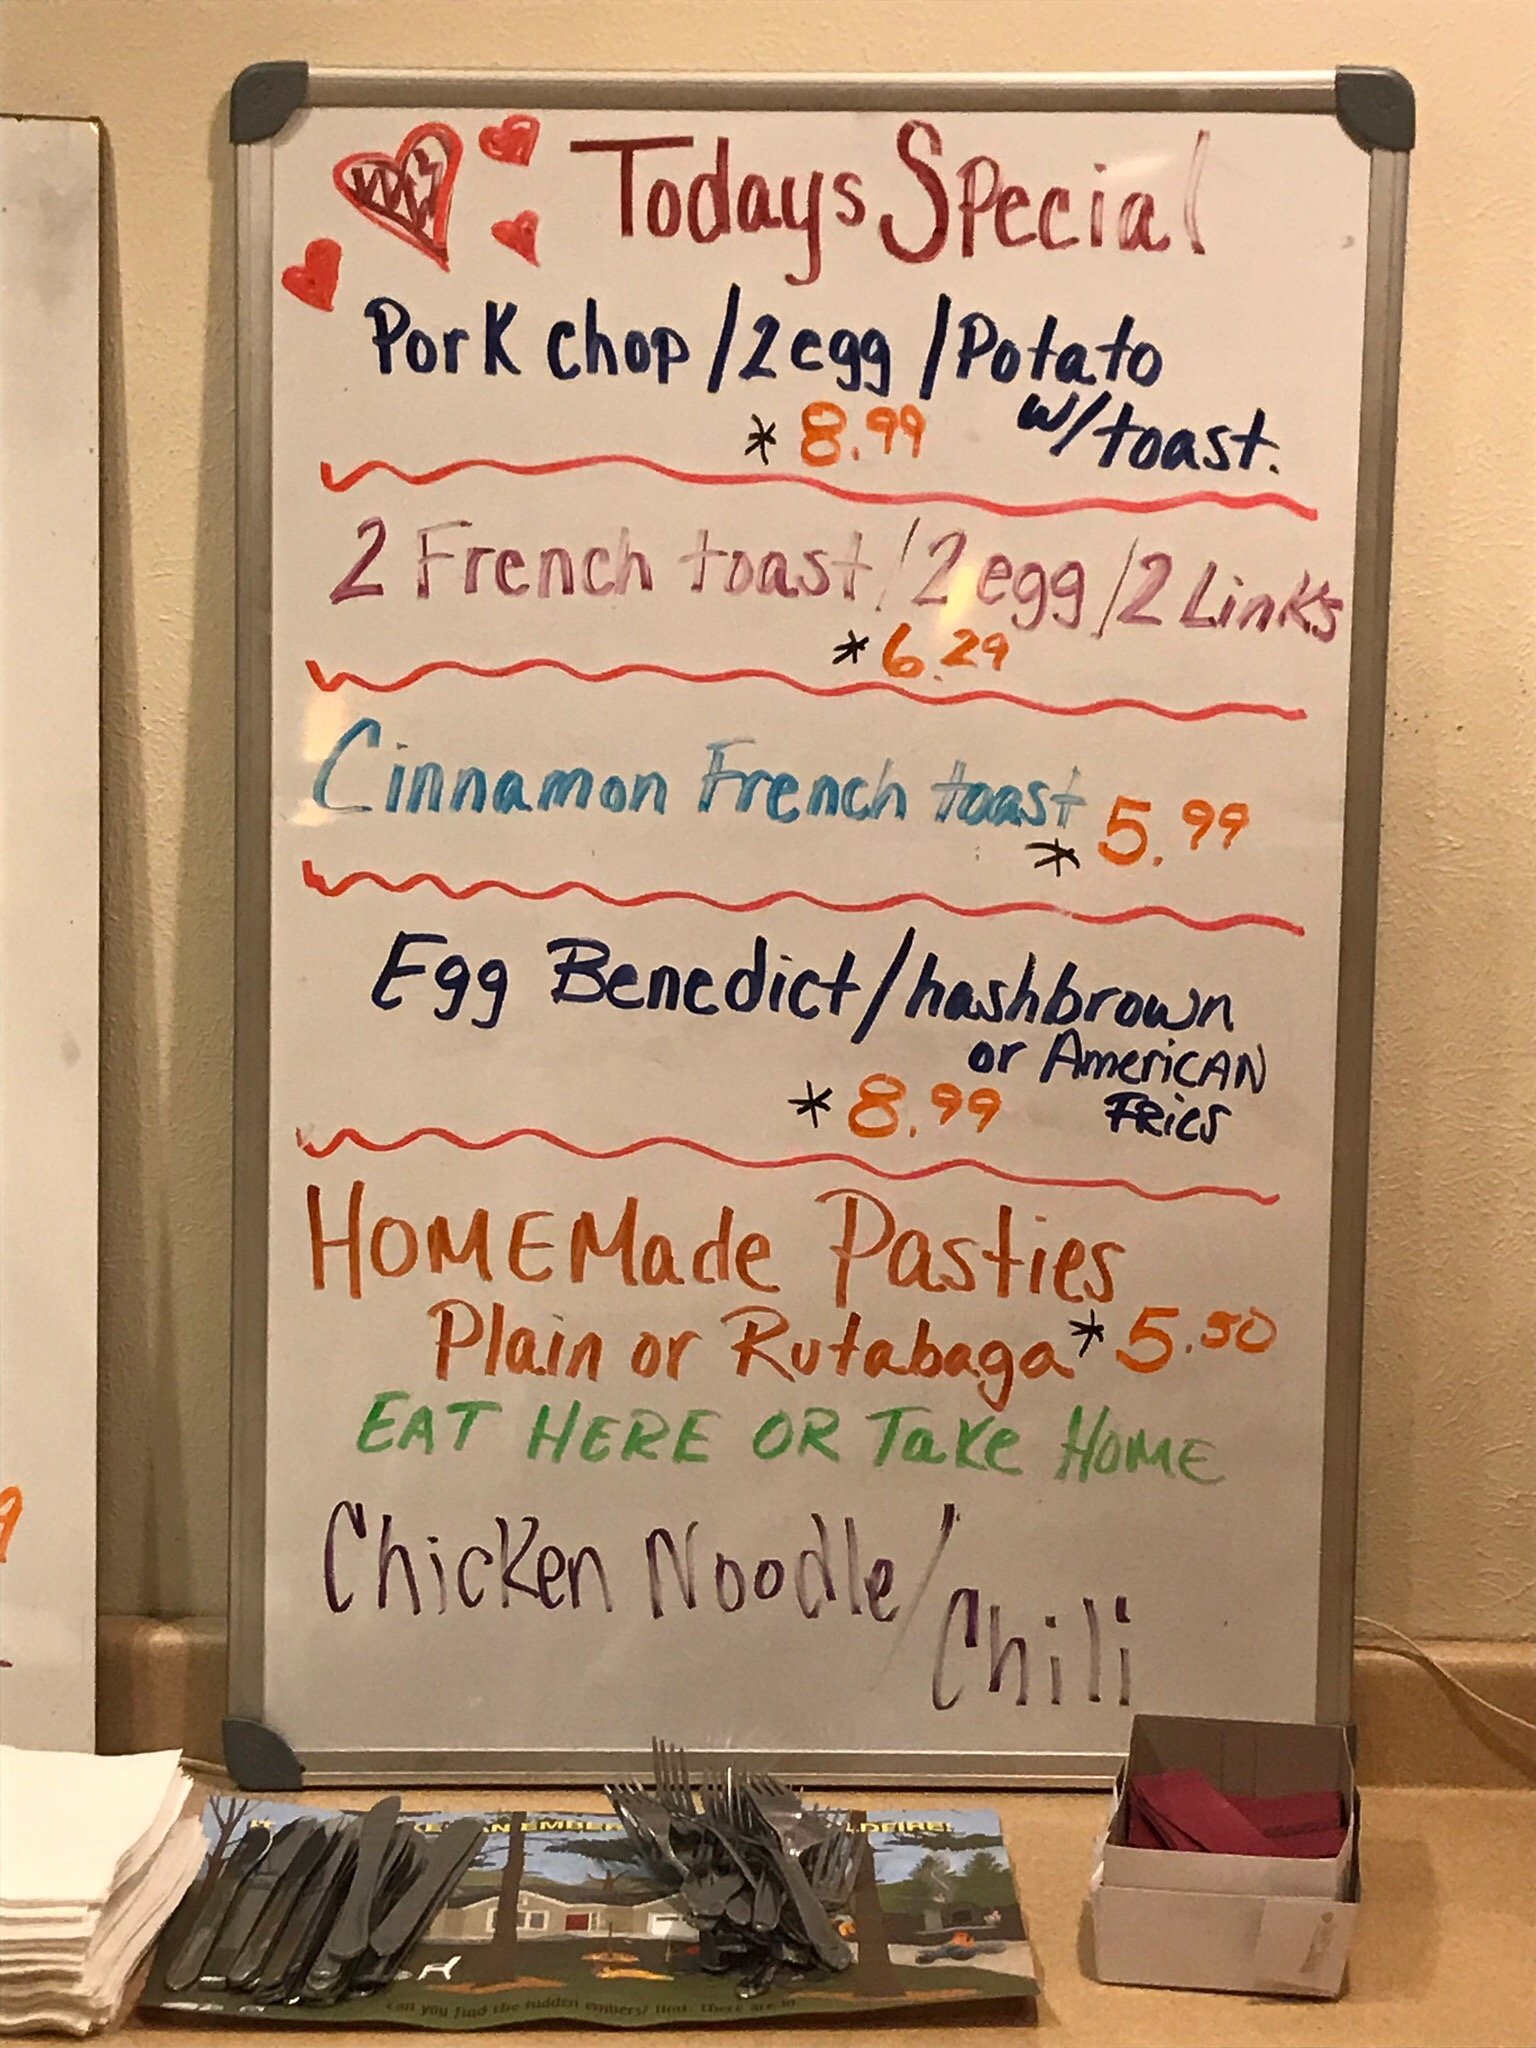 Todays Special
Pork chop / 2 egg / Potato
w/toast.
* 8.99
2 French toast / 2 egg / 2 Links
* 6.29
Cinnamon French toast
* 5.99
Egg Benedict / hashbrown
or AMERICAN
FRIES
* 8.99
HOMEMade Pasties
Plain or Rutabaga * 5.50
EAT HERE OR Take HOME
Chicken Noodle /
Chili
can you find the hidden embers? Hint: there are